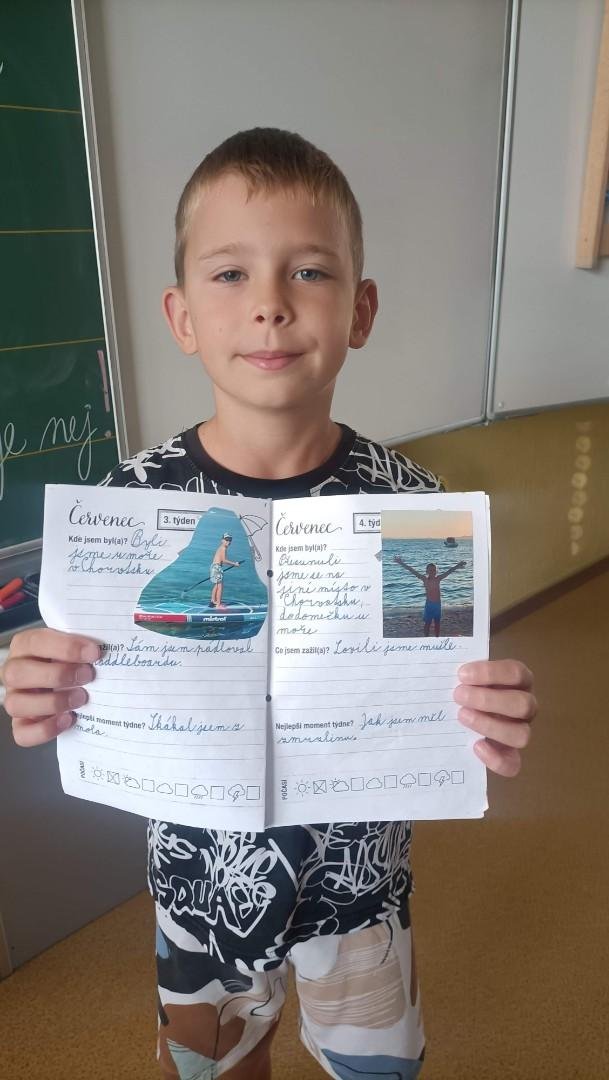 je nej!
Červenec
3. týden
Kde jsem byl(a)? Byli
jsme u moře
v Chorvatsku
mistral
žil(a)? Tám jsem pádloval
addleboardu.
Nejlepší moment týdne? Skákal jsem z
mola.
POČASÍ
Červenec
4. týd
Kde jsem byl(a)?
Přesunuli
jsme se na
jiné místo v
Chorvatsku,
do domečku u
moře
Co jsem zažil(a)? Lovili jsme mušle.
Nejlepší moment týdne? Jak jsem měl
zmrzlinu.
POČASÍ
SQUAD